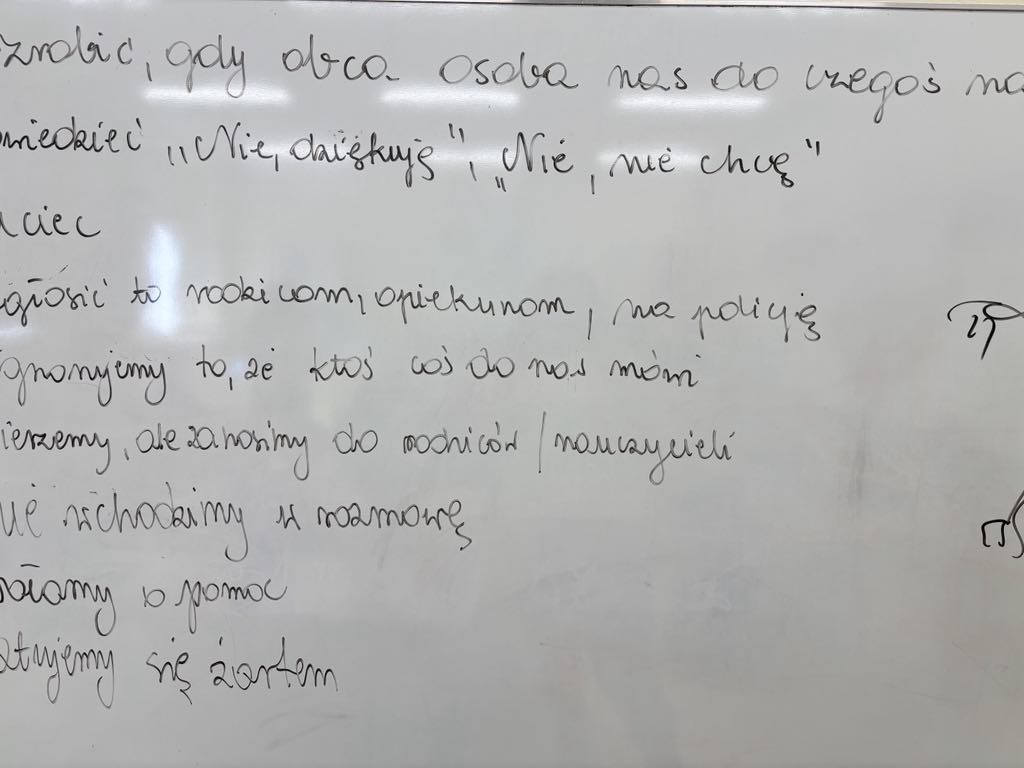 zrobić, gdy obca osoba nas do czegoś na
owiedzieć „Nie, dziękuję", „Nie, nie chcę"
uciec
zgłosić to rodzicom, opiekunom, na policję
ignorujemy to, że ktoś coś do nas mówi
ierzemy, ale zanosimy do rodziców / nauczycieli
nie wchodzimy w rozmowę
ołamy o pomoc
atujemy się żartem